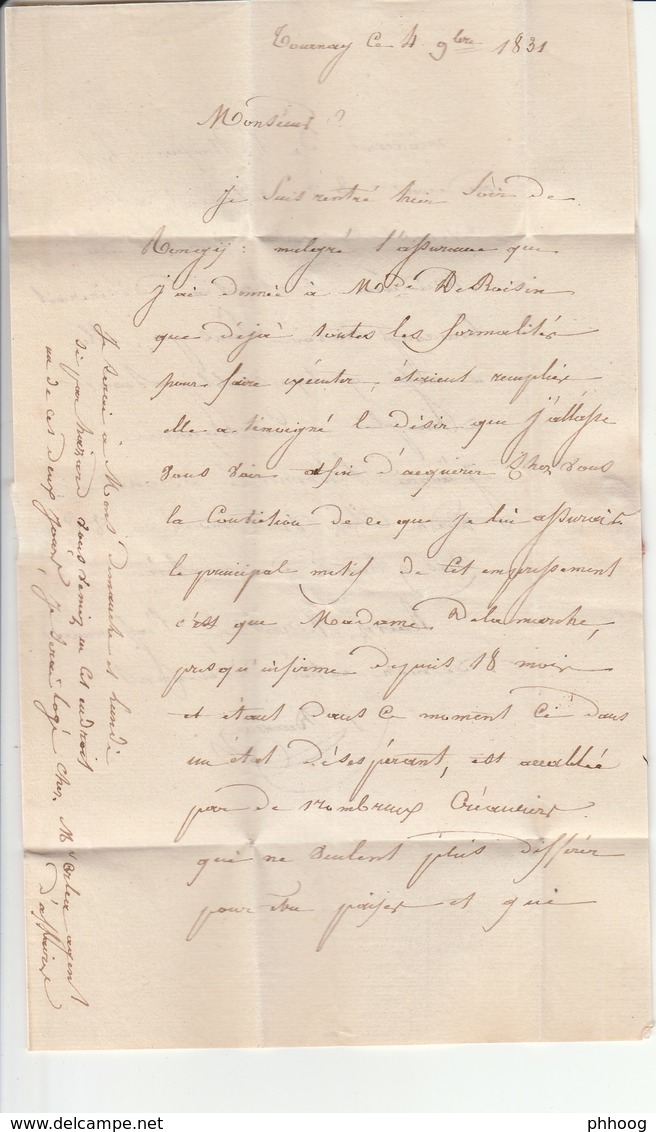 Tournay Ce 4 9bre 1831
Monsieur
Je suis rentré hier soir de
malgré l'assurance que
j'ai donnée à Mde De Raisin
que déjà toutes les formalités
pour faire exécuter, étoient remplies
elle a témoigné le désir que j'allasse
vous voir afin d'acquérir chez vous
la Conviction de ce que je lui assurois.
le principal motif de cet empressement
c'est que Madame Delamarche,
presqu'infirme depuis 18 mois
et étant dans ce moment ci dans
un état désespérant, est accablée
par de nombreux Créanciers
qui ne veulent plus différer
pour être payés et qui
Je serai à Mons dimanche et lundi
si par hazard vous veniez en cet endroit
un de ces deux jours, je serai logé chez Mr agent
d'affaires
phhoog
www.delcampe.net